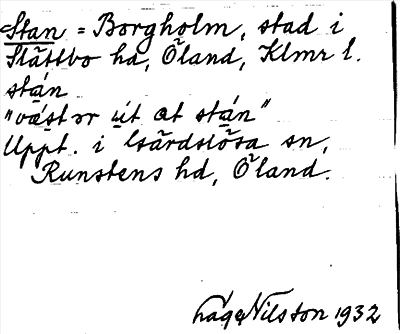 Stan = Borgholm, stad i
Slättbo hd, Öland, Klmr l.
stán
"väst ər út at stán"
Uppt. i Gärdslösa sn,
Runstens hd, Öland.
Nilston 1932